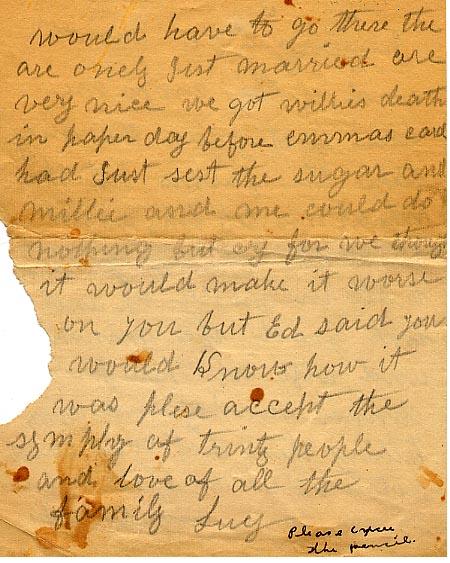 would have to go there the
are onely Just married are
very nice we got willies death
in paper day before emmas card
had Just sest the sugar and
millie and me could do
nothing but cry for we
it would make it worse
on you but Ed said you
would know how it
was plese accept the
symphy of trinty people
and love of all the
family Lucy
Please excuse
the pencil.